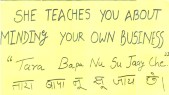 SHE TEACHES YOU ABOUT
MINDING YOUR OWN BUSINESS
"Tara Bapa Nu Su Jaay Che"
तारा बापा नु सू जाय छे!